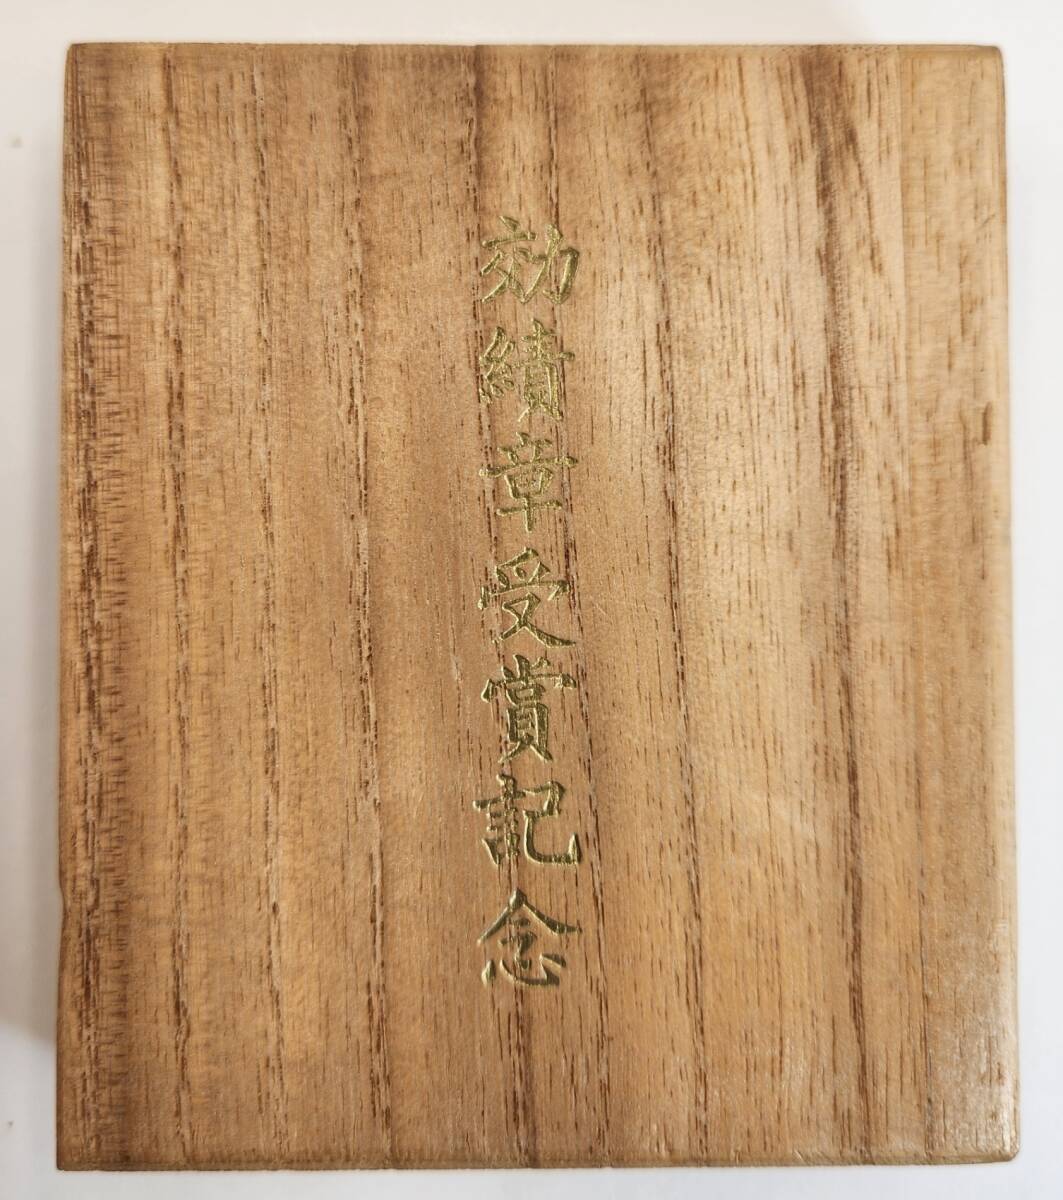 効績章受賞記念